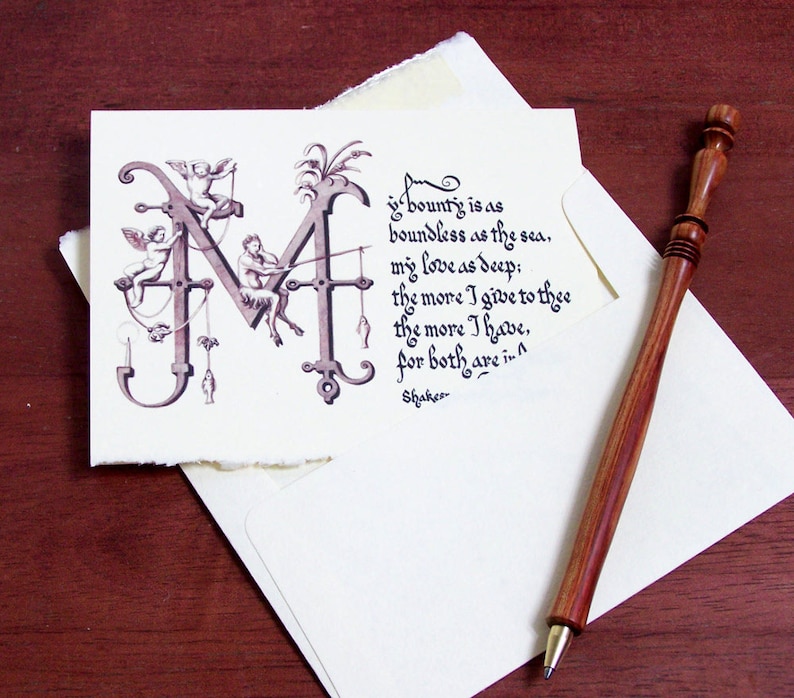 M
y bounty is as
boundless as the sea,
my love as deep;
the more I give to thee
the more I have,
for both are